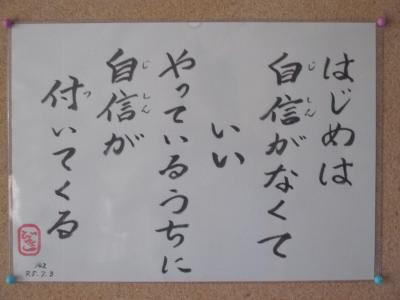 はじめは
自信がなくて
いい
やっているうちに
自信が
付いてくる
じしん
じしん
つ
R5.7.3